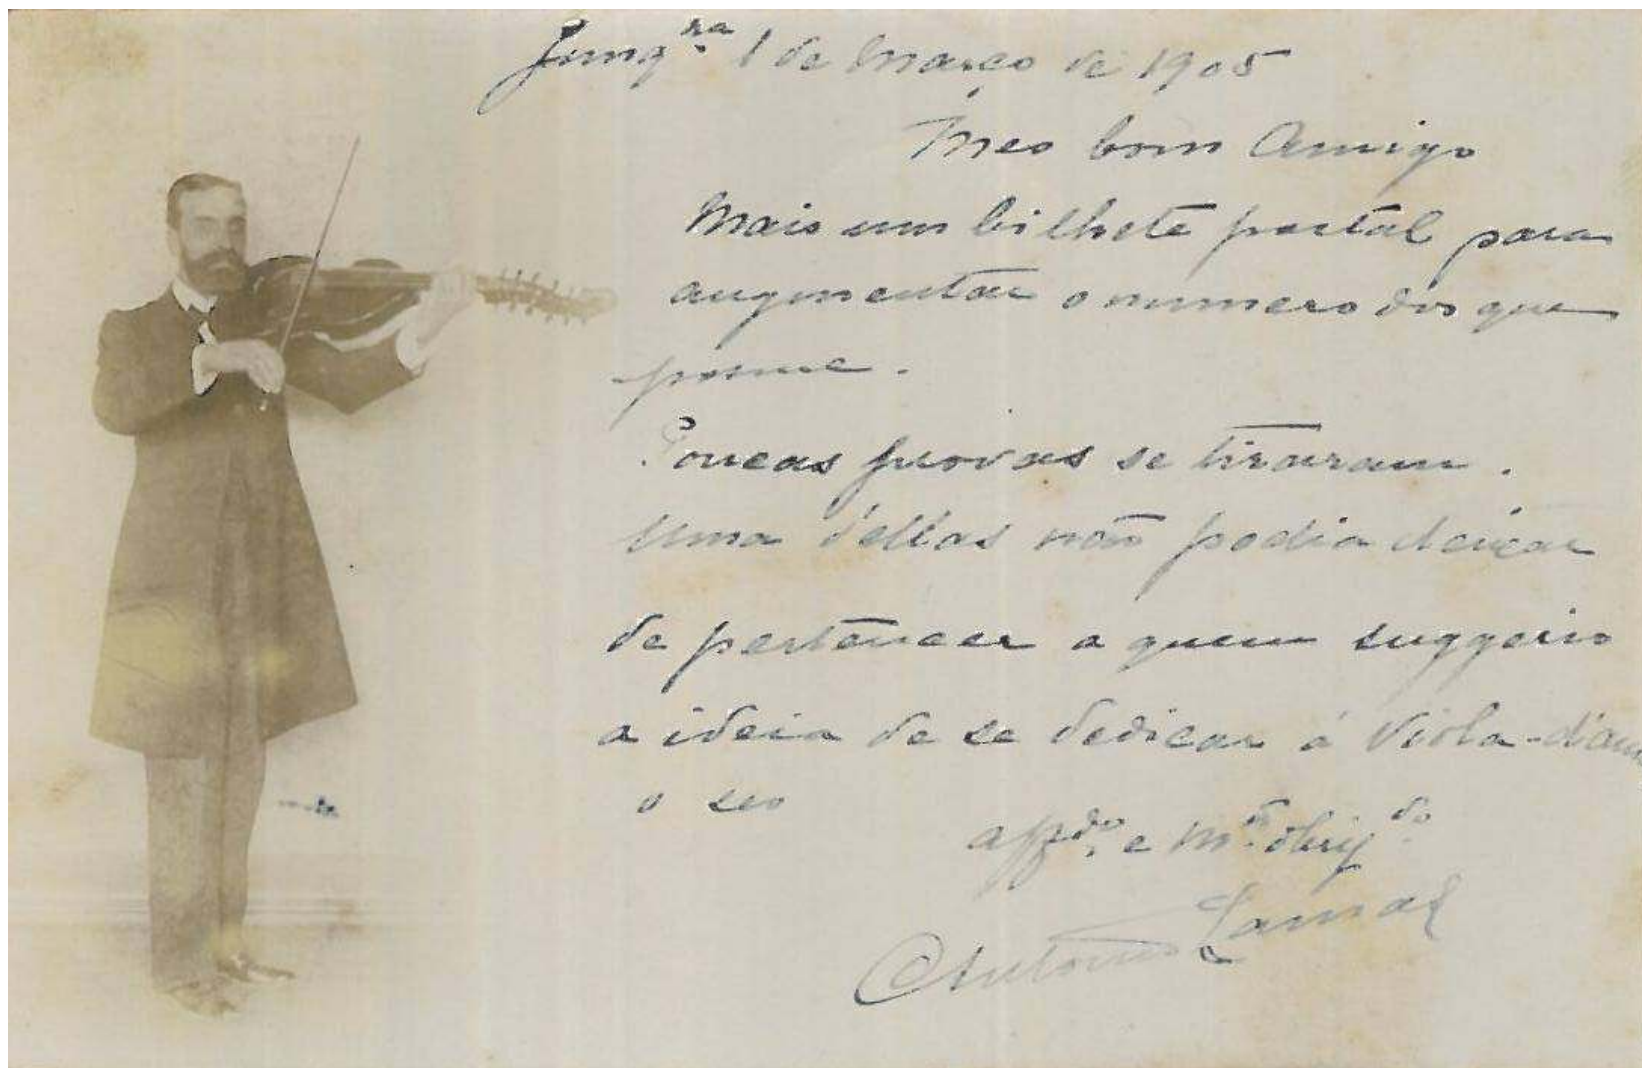 Junq.ra 1 de Março de 1905
Meo bom Amigo
Mais um bilhete postal para
augmentar o numero dos que
possue.
Poucas provas se tiraram.
Uma d'ellas não podia deixar
de pertencer a quem suggerio
a ideia de se dedicar á Viola-d'am
o seo
aff.do e M.to obrig.do
Antonio Lamas